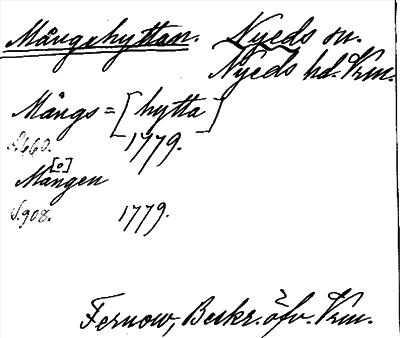 Mångshyttan. Nyeds sn.
Nyeds hd. Vrm.
Mångs=[hytta]
S.660. 1779.
[o]
Mången
S.908. 1779.
Fernow, Beskr. öfv. Vrm.